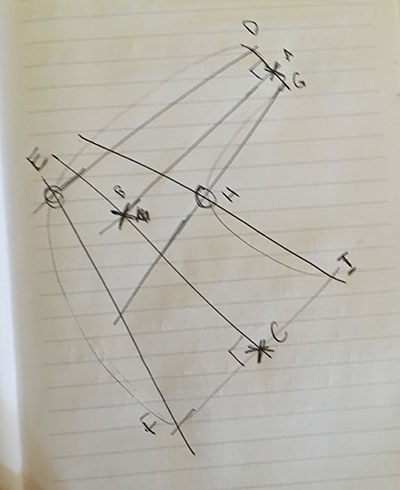 D
A
G
E
B
H
I
C
F